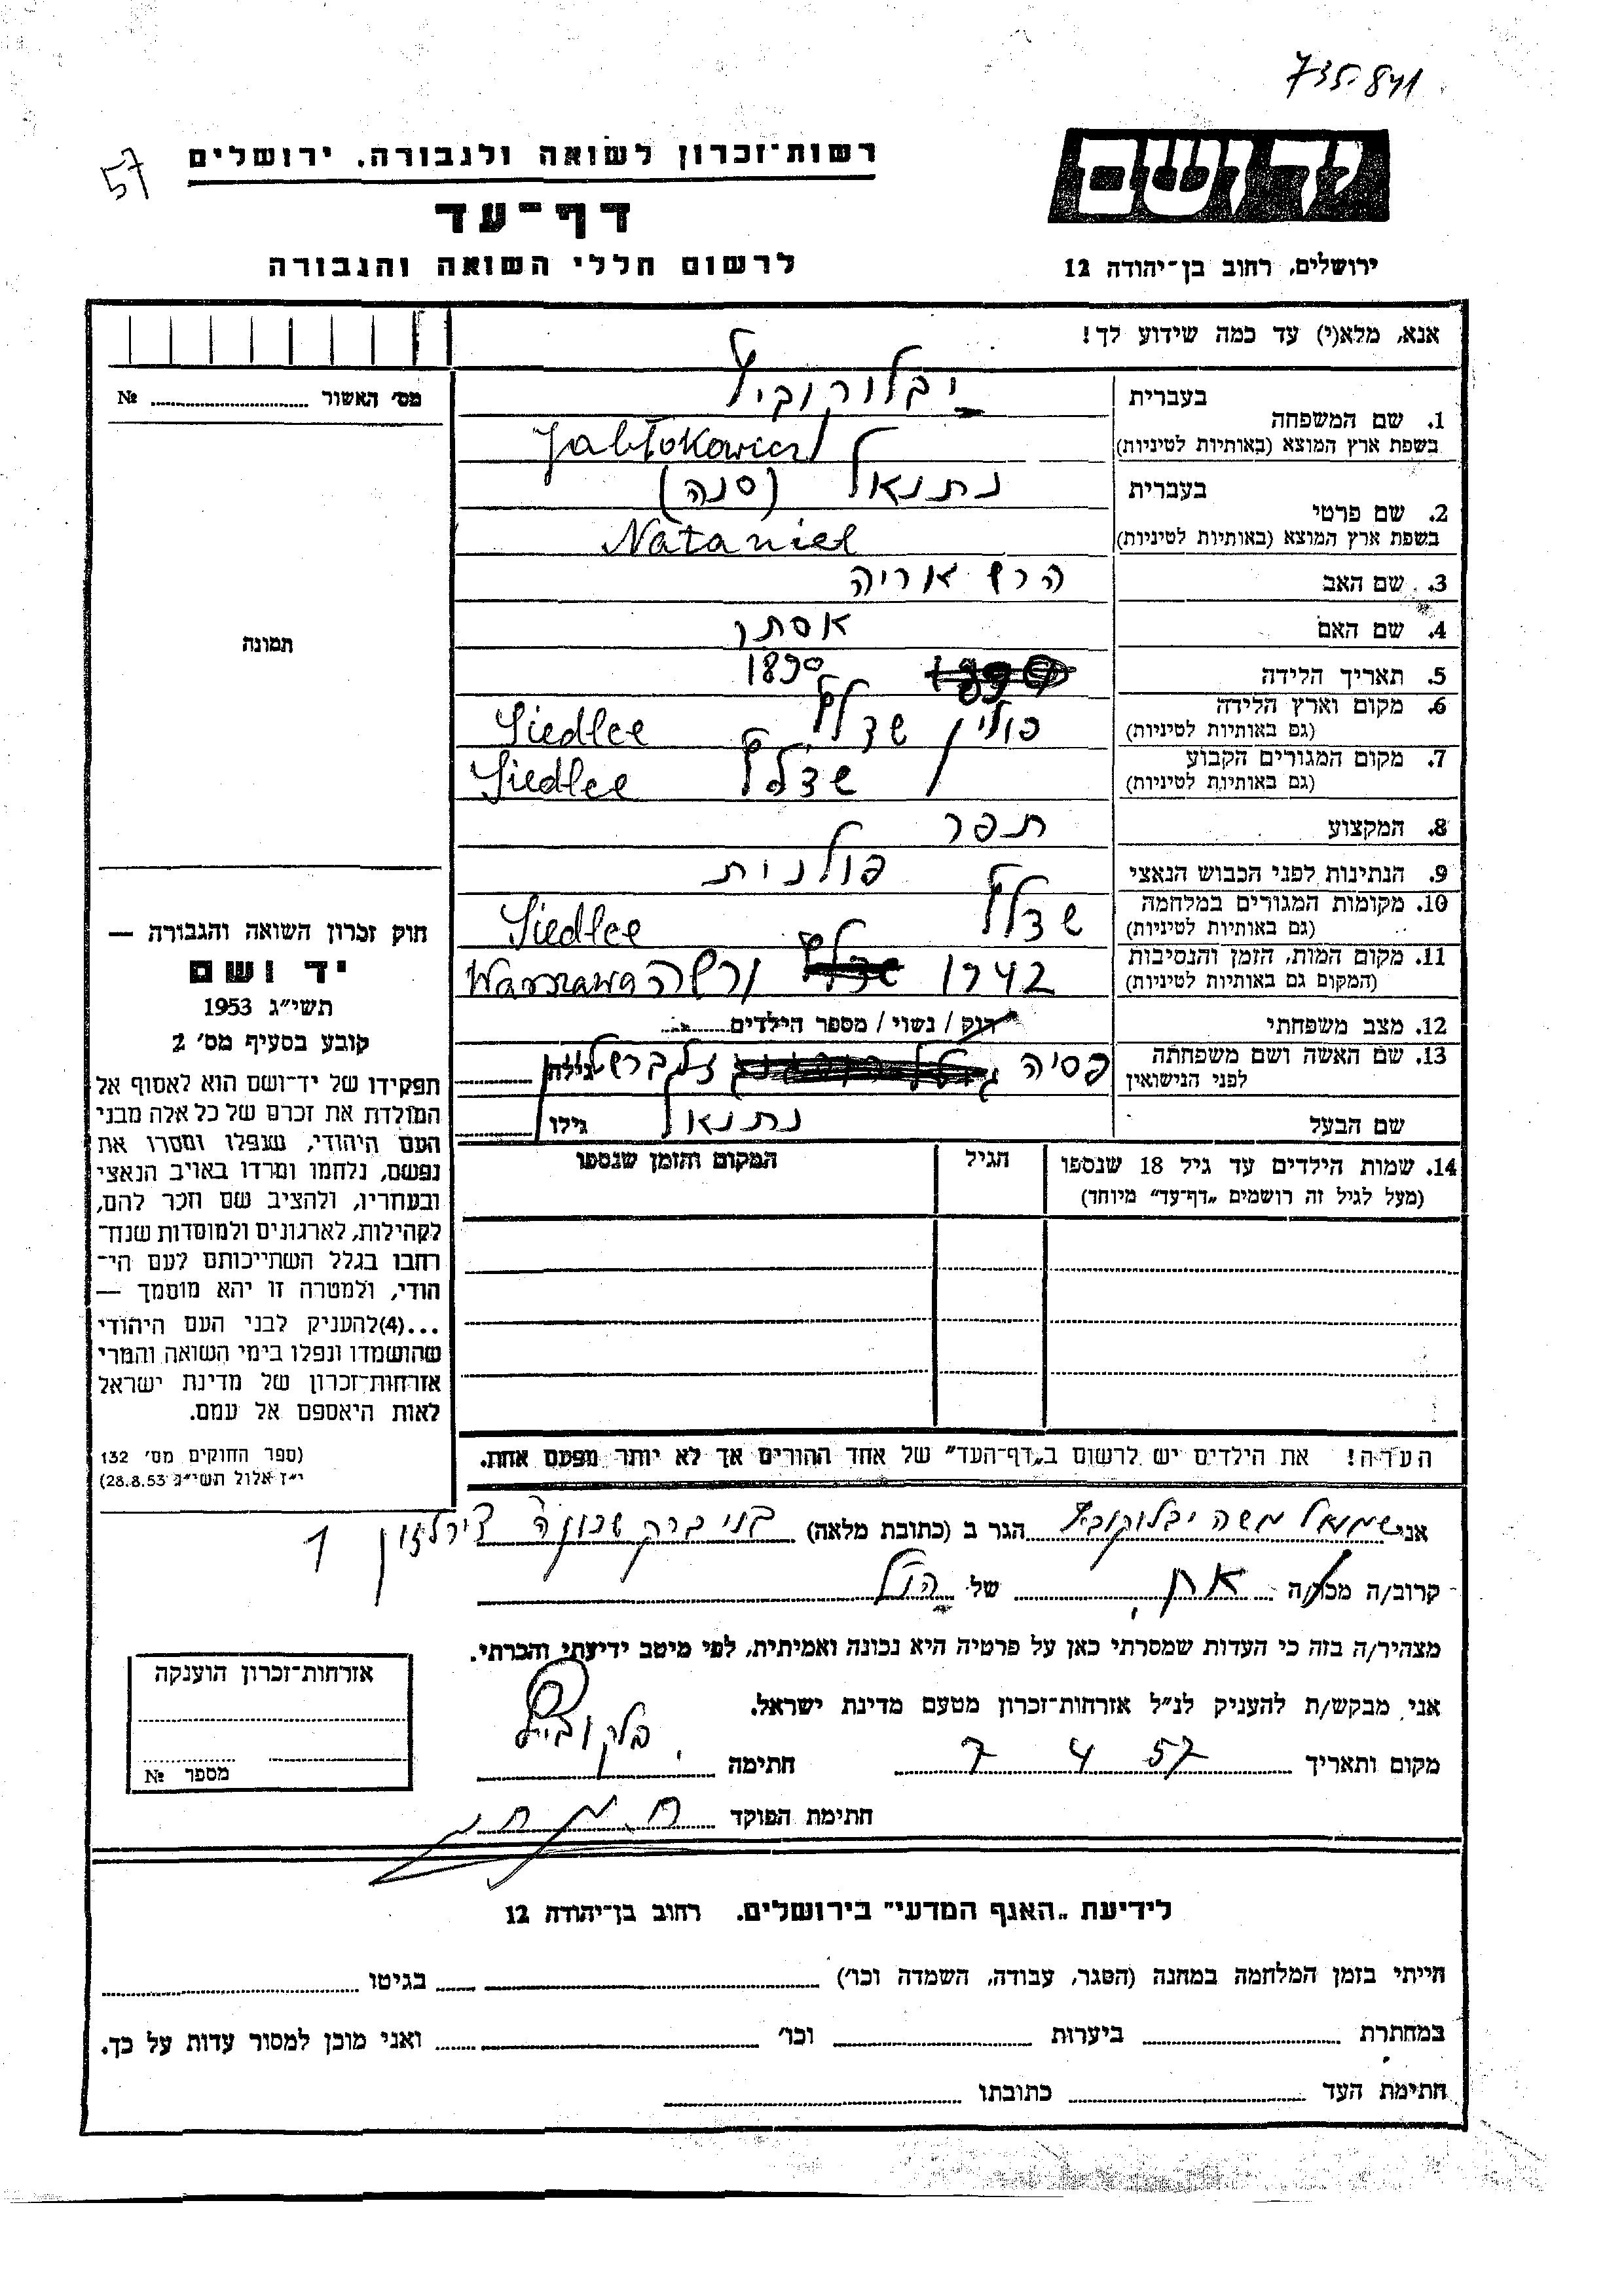 735.841
57
יד ושם
רשות־זכרון לשואה ולגבורה. ירושלים
דף־עד
לרשום חללי השואה והגבורה
ירושלים, רחוב בן־יהודה 12
אנא, מלא(י) עד כמה שידוע לך!
מס׳ האשור № ........
תמונה
1. שם המשפחה
בעברית
בשפת ארץ המוצא (באותיות לטיניות)
Jabłokowicz
2. שם פרטי
בעברית נתנאל (סנה)
בשפת ארץ המוצא (באותיות לטיניות) Nataniel
3. שם האב הרש אריה
4. שם האם אסתר
5. תאריך הלידה 1890
6. מקום וארץ הלידה פולין שדלץ Siedlce
(גם באותיות לטיניות)
7. מקום המגורים הקבוע שדלץ Siedlce
(גם באותיות לטיניות)
8. המקצוע תפר
9. הנתינות לפני הכבוש הנאצי פולנית
10. מקומות המגורים במלחמה שדלץ Siedlce
(גם באותיות לטיניות)
11. מקום המות, הזמן והנסיבות 1942 ורשה Warszawa
(המקום גם באותיות לטיניות)
12. מצב משפחתי רוק / נשוי / מספר הילדים
13. שם האשה ושם משפחתה פסיה
לפני הנישואין
גילה
שם הבעל נתנאל גילו
14. שמות הילדים עד גיל 18 שנספו
(מעל לגיל זה רושמים „דף־עד״ מיוחד)
הגיל
המקום והזמן שנספו
הערה! את הילדים יש לרשום ב„דף־העד״ של אחד ההורים אך לא יותר מפעם אחת.
חוק זכרון השואה והגבורה —
יד ושם
תשי״ג 1953
קובע בסעיף מס׳ 2
תפקידו של יד־ושם הוא לאסוף אל
המולדת את זכרם של כל אלה מבני
העם היהודי, שנפלו ומסרו את
נפשם, נלחמו ומרדו באויב הנאצי
ובעוזריו, ולהציב שם וזכר להם,
לקהילות, לארגונים ולמוסדות שנח־
רבו בגלל השתייכותם לעם הי־
הודי, ולמטרה זו יהא מוסמך —
...(4)להעניק לבני העם היהודי
שהושמדו ונפלו בימי השואה והמרי
אזרחות־זכרון של מדינת ישראל
לאות היאספם אל עמם.
(ספר החוקים מס׳ 132
י״ז אלול תשי״ג 28.8.53)
אני שמואל משה יבלוקוביץ הגר ב (כתובת מלאה) בני ברק שכונה 1
קרוב/ה מכר/ה אח של הנ״ל
מצהיר/ה בזה כי העדות שמסרתי כאן על פרטיה היא נכונה ואמיתית, לפי מיטב ידיעתי והכרתי.
אני מבקש/ת להעניק לנ״ל אזרחות־זכרון מטעם מדינת ישראל.
מקום ותאריך 7 4 57 חתימה
חתימת הפוקד
אזרחות־זכרון הוענקה
מספר №
לידיעת „האגף המדעי״ בירושלים. רחוב בן־יהודה 12
הייתי בזמן המלחמה במחנה (הסגר, עבודה, השמדה וכו׳) בגיטו
במחתרת ביערות וכו׳ ואני מוכן למסור עדות על כך.
חתימת העד כתובתו